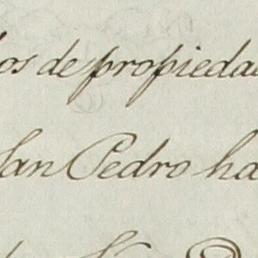 os de propieda
San Pedro ha